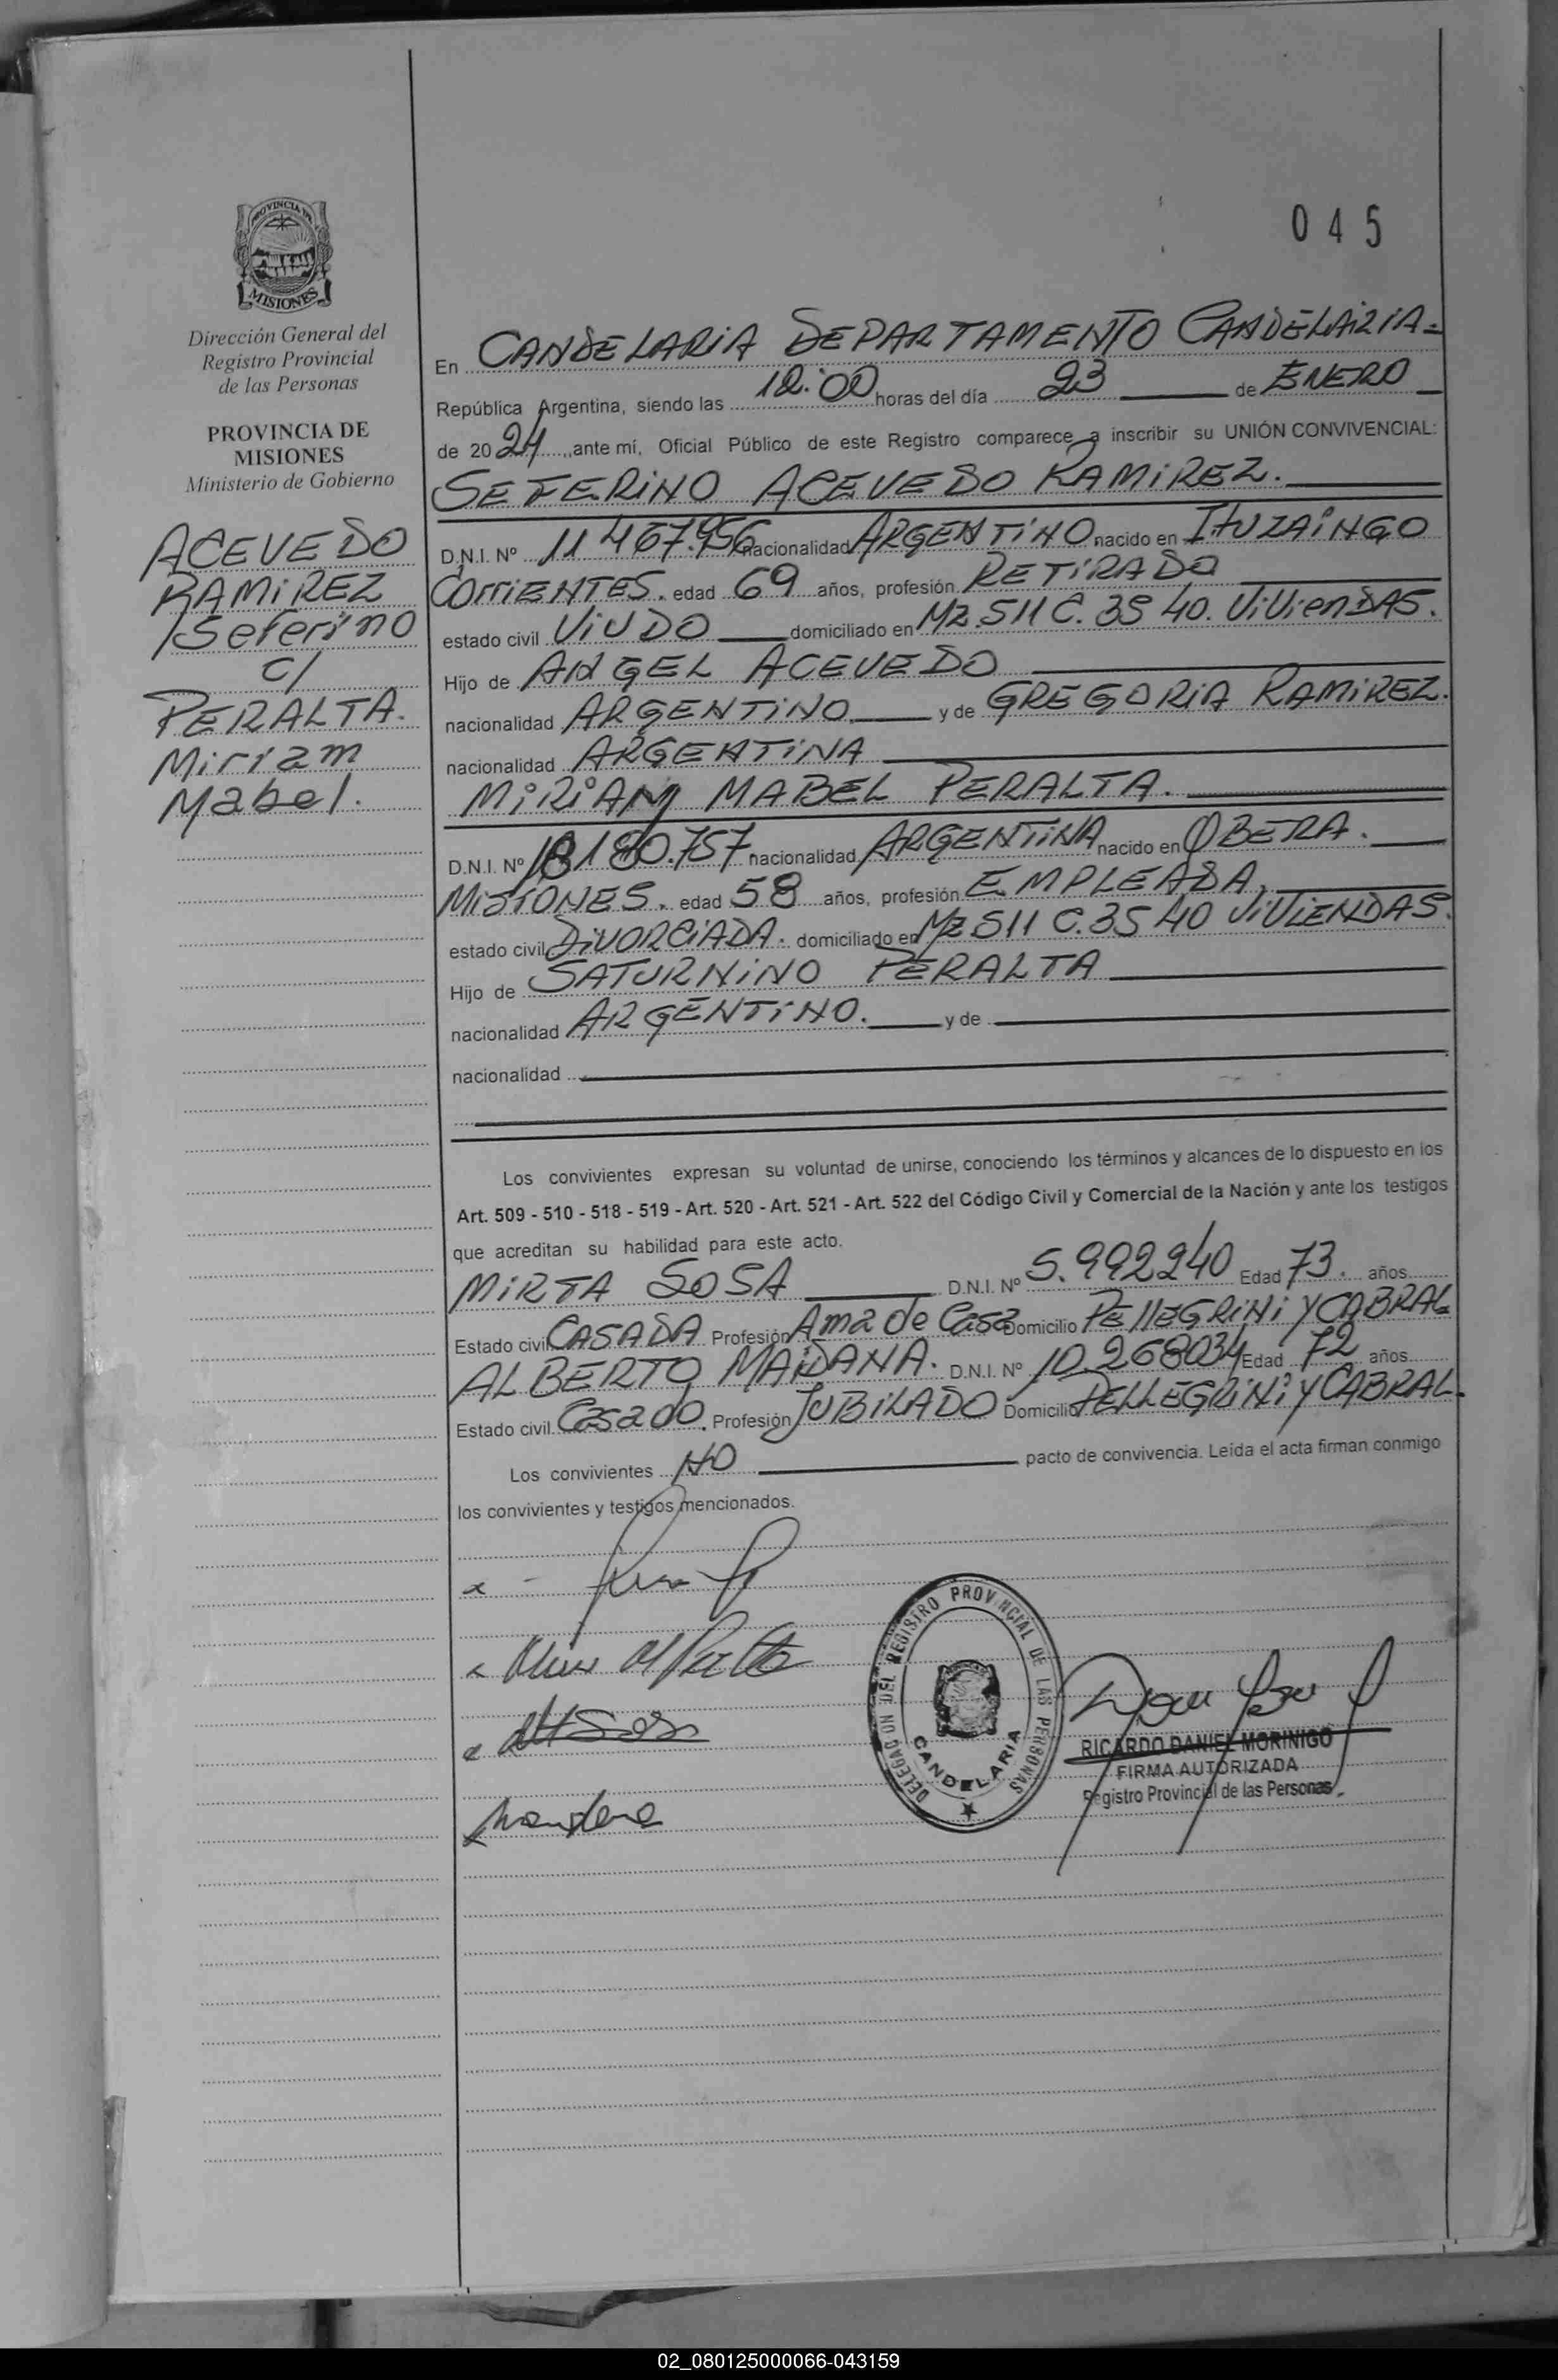 045
PROVINCIA DE
MISIONES
Dirección General del
Registro Provincial
de las Personas
PROVINCIA DE
MISIONES
Ministerio de Gobierno
ACEVEDO
RAMIREZ
Seferino
c/
PERALTA.
Miriam
Mabel.
En CANDELARIA DEPARTAMENTO CANDELARIA
República Argentina, siendo las 12:00 horas del día 23 de ENERO
de 2024 ante mí, Oficial Público de este Registro comparece a inscribir su UNIÓN CONVIVENCIAL:
SEFERINO ACEVEDO RAMIREZ.
D.N.I. Nº 11 467.956 nacionalidad ARGENTINO nacido en ITUZAINGO
CORRIENTES. edad 69 años, profesión RETIRADO
estado civil VIUDO domiciliado en Mz. 511 C. 35 40. ViViENDAS.
Hijo de ANGEL ACEVEDO
nacionalidad ARGENTINO y de GREGORIA RAMIREZ.
nacionalidad ARGENTINA
MIRIAM MABEL PERALTA.
D.N.I. Nº 18180.757 nacionalidad ARGENTINA nacido en OBERA.
MISIONES. edad 58 años, profesión EMPLEADA,
estado civil DIVORCIADA. domiciliado en Mz 511 C. 35 40 ViViENDAS.
Hijo de SATURNINO PERALTA
nacionalidad ARGENTINO. y de
nacionalidad
Los convivientes expresan su voluntad de unirse, conociendo los términos y alcances de lo dispuesto en los
Art. 509 - 510 - 518 - 519 - Art. 520 - Art. 521 - Art. 522 del Código Civil y Comercial de la Nación y ante los testigos
que acreditan su habilidad para este acto.
MIRTA SOSA D.N.I. Nº 5.992240 Edad 73. años
Estado civil CASADA Profesión Ama de Casa Domicilio PELLEGRINI Y CABRAL
ALBERTO MAIDANA. D.N.I. Nº 10.268034 Edad 72 años
Estado civil Casado. Profesión JUBILADO Domicilio PELLEGRINI Y CABRAL.
Los convivientes NO pacto de convivencia. Leída el acta firman conmigo
los convivientes y testigos mencionados.
DELEGACION DEL REGISTRO PROVINCIAL DE LAS PERSONAS
CANDELARIA
RICARDO DANIEL MORINIGO
FIRMA AUTORIZADA
Registro Provincial de las Personas
02_080125000066-043159